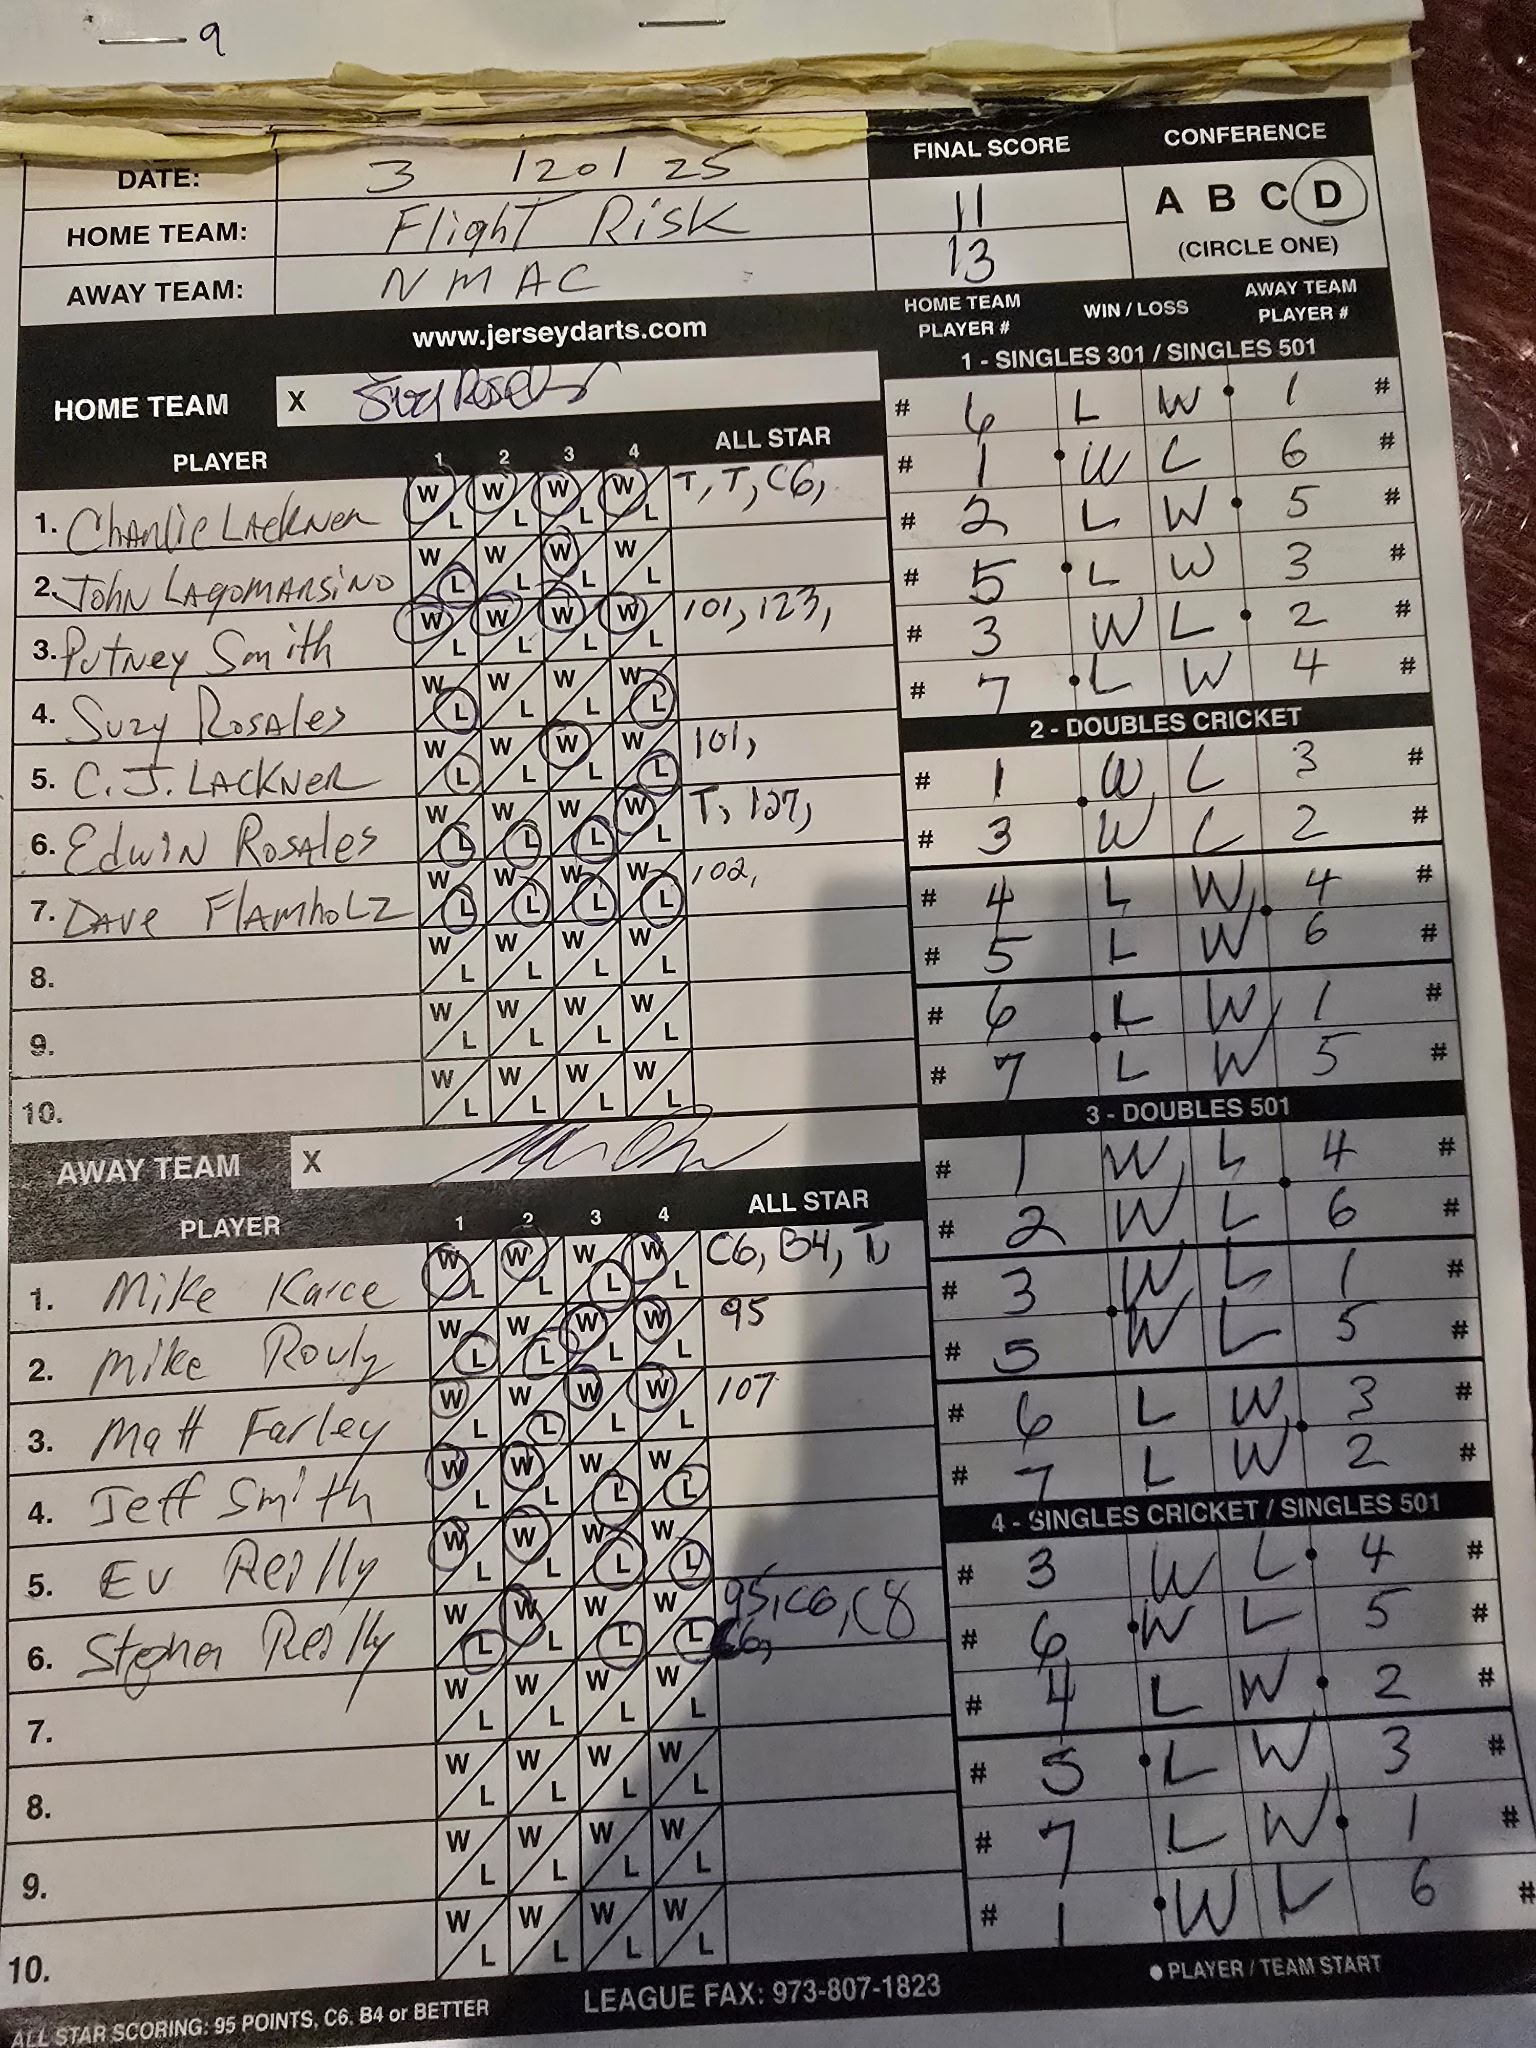 9
FINAL SCORE CONFERENCE
DATE: 3 / 20 / 25
HOME TEAM: Flight Risk 11 A B C D
AWAY TEAM: NMAC 13 (CIRCLE ONE)
www.jerseydarts.com
HOME TEAM PLAYER # WIN / LOSS AWAY TEAM PLAYER #
HOME TEAM X Suzy Rosales
PLAYER 1 2 3 4 ALL STAR
1. Charlie Lackner W L W L W L W L T, T, C6,
2. John Lagomarsino W L W L W L W L
3. Putney Smith W L W L W L W L 101, 123,
4. Suzy Rosales W L W L W L W L
5. C.J. Lackner W L W L W L W L 101,
6. Edwin Rosales W L W L W L W L T, 127,
7. Dave Flamholz W L W L W L W L 102,
8. W L W L W L W L
9. W L W L W L W L
10. W L W L W L W L
AWAY TEAM X
PLAYER 1 2 3 4 ALL STAR
1. Mike Karce W L W L W L W L C6, B4, T,
2. Mike Rouly W L W L W L W L 95
3. Matt Farley W L W L W L W L 107
4. Jeff Smith W L W L W L W L
5. Ev Reilly W L W L W L W L
6. Stephen Reilly W L W L W L W L 95, C6, C8
C6,
7. W L W L W L W L
8. W L W L W L W L
9. W L W L W L W L
10. W L W L W L W L
1 - SINGLES 301 / SINGLES 501
# 6 L W 1 #
# 1 W L 6 #
# 2 L W 5 #
# 5 L W 3 #
# 3 W L 2 #
# 7 L W 4 #
2 - DOUBLES CRICKET
# 1 W L 3 #
# 3 W L 2 #
# 4 L W 4 #
# 5 L W 6 #
# 6 L W 1 #
# 7 L W 5 #
3 - DOUBLES 501
# 1 W L 4 #
# 2 W L 6 #
# 3 W L 1 #
# 5 W L 5 #
# 6 L W 3 #
# 7 L W 2 #
4 - SINGLES CRICKET / SINGLES 501
# 3 W L 4 #
# 6 W L 5 #
# 4 L W 2 #
# 5 L W 3 #
# 7 L W 1 #
# 1 W L 6 #
ALL STAR SCORING: 95 POINTS, C6, B4 or BETTER LEAGUE FAX: 973-807-1823 ● PLAYER / TEAM START